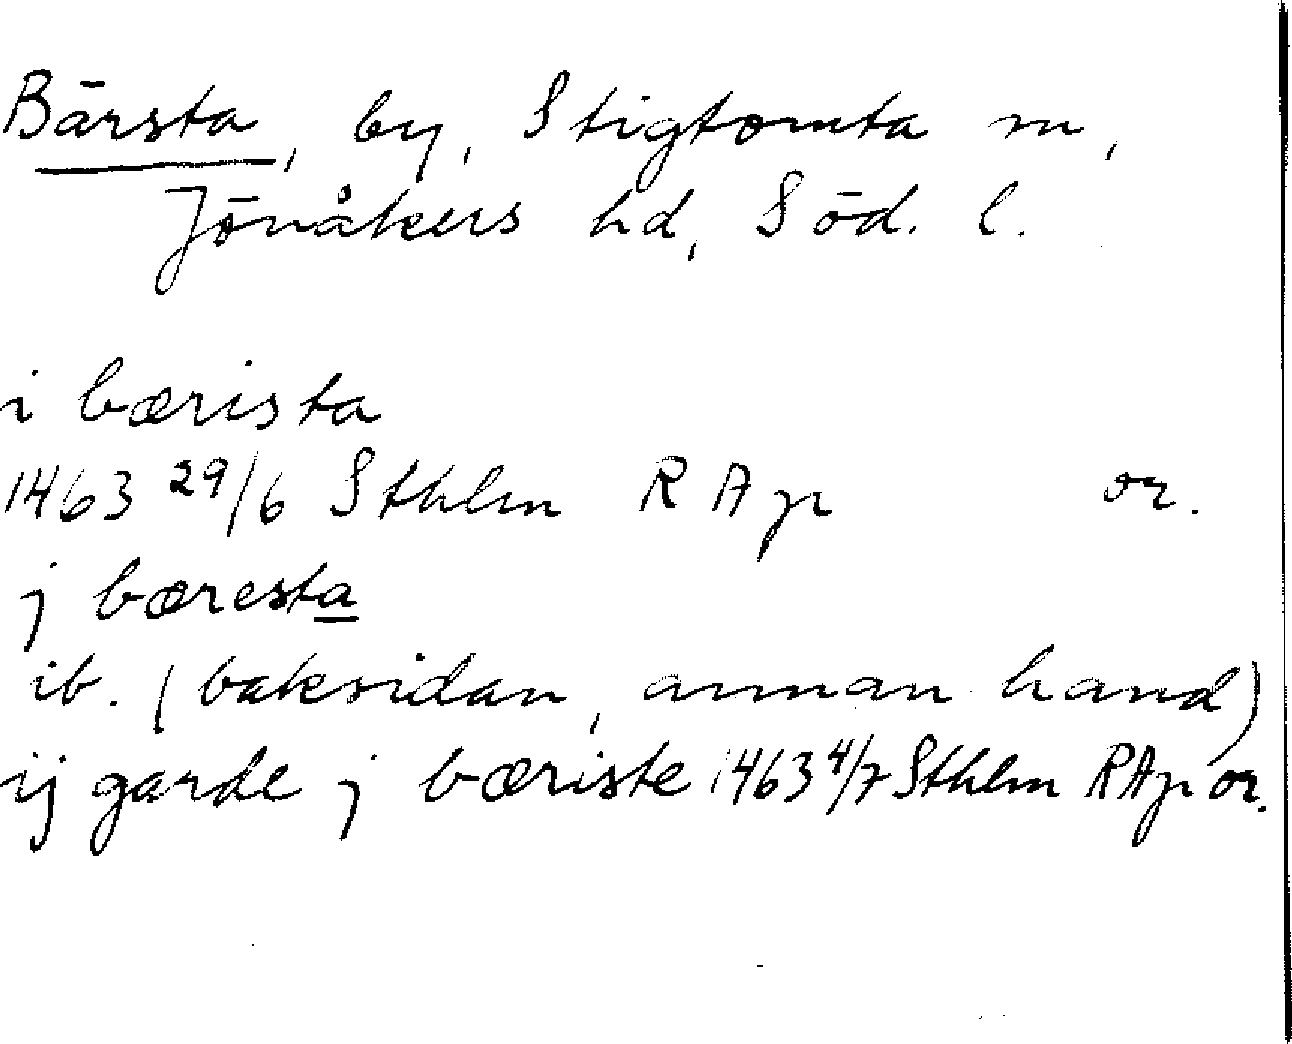 Bärsta, by, Stigtomta sn,
Jönåkers hd, Söd. l.
i bærista
1463 29/6 Sthlm RAp or.
j bæresta
ib. (baksidan, annan hand)
ij garde j bæriste 1463 4/7 Sthlm RAp or.